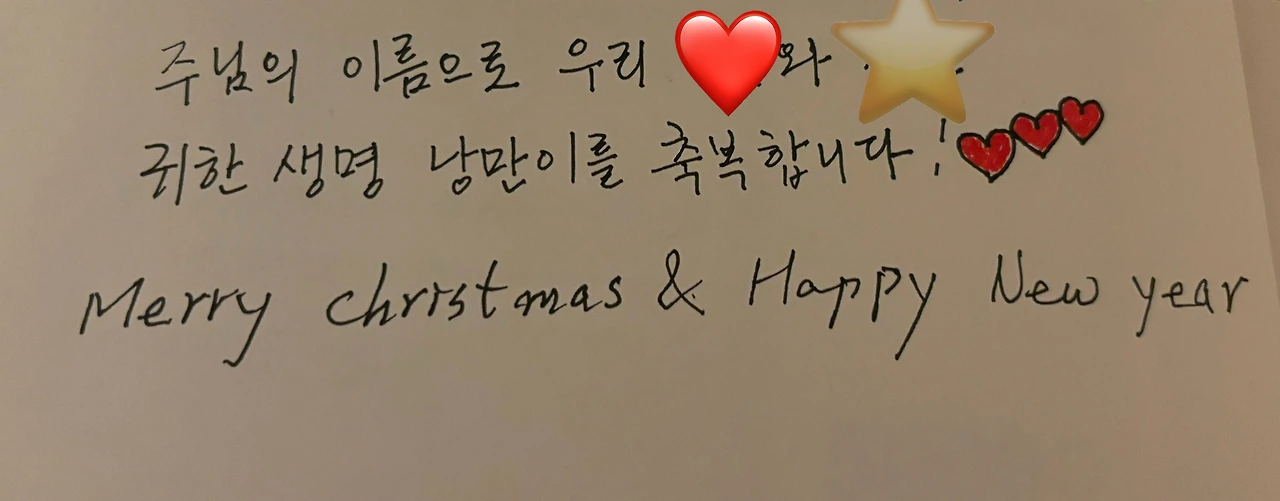 주님의 이름으로 우리 와
귀한 생명 낭만이를 축복합니다!
Merry christmas & Happy New year